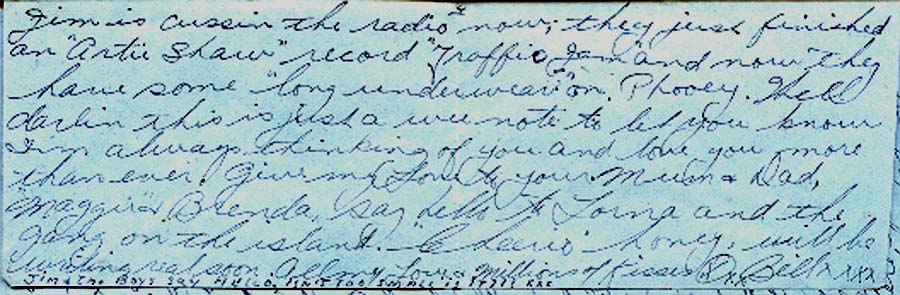 Jim is cussin the radio now; they just finished
an "Artie Shaw" record "Traffic Jam" and now they
have some "long underwear" on. Phooey. Well
darlin this is just a wee note to let you know
I'm always thinking of you and love you more
than ever. Give my Love to your Mum & Dad,
"Maggie" & Brenda, say hello to Lorna and the
gang on the island. "Cheerio" honey, will be
writing real soon. All my Love & Millions of Kisses Bill xxx
Jim & the Boys say HULLO,